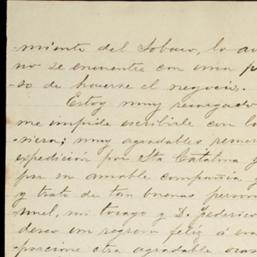 miento del Tobaco, lo av
no se encuentre con una p
so de hacerse el negocio.
Estoy muy resregado
me impide escribirle con la
siera; muy agradables remem
expedición por Sta Catalina y
por su amable compañia y
y trato de tan buenas person
nuel, mi tocayo y D. Federico
deseo un regreso feliz á esa
porcione otra agradable ocas